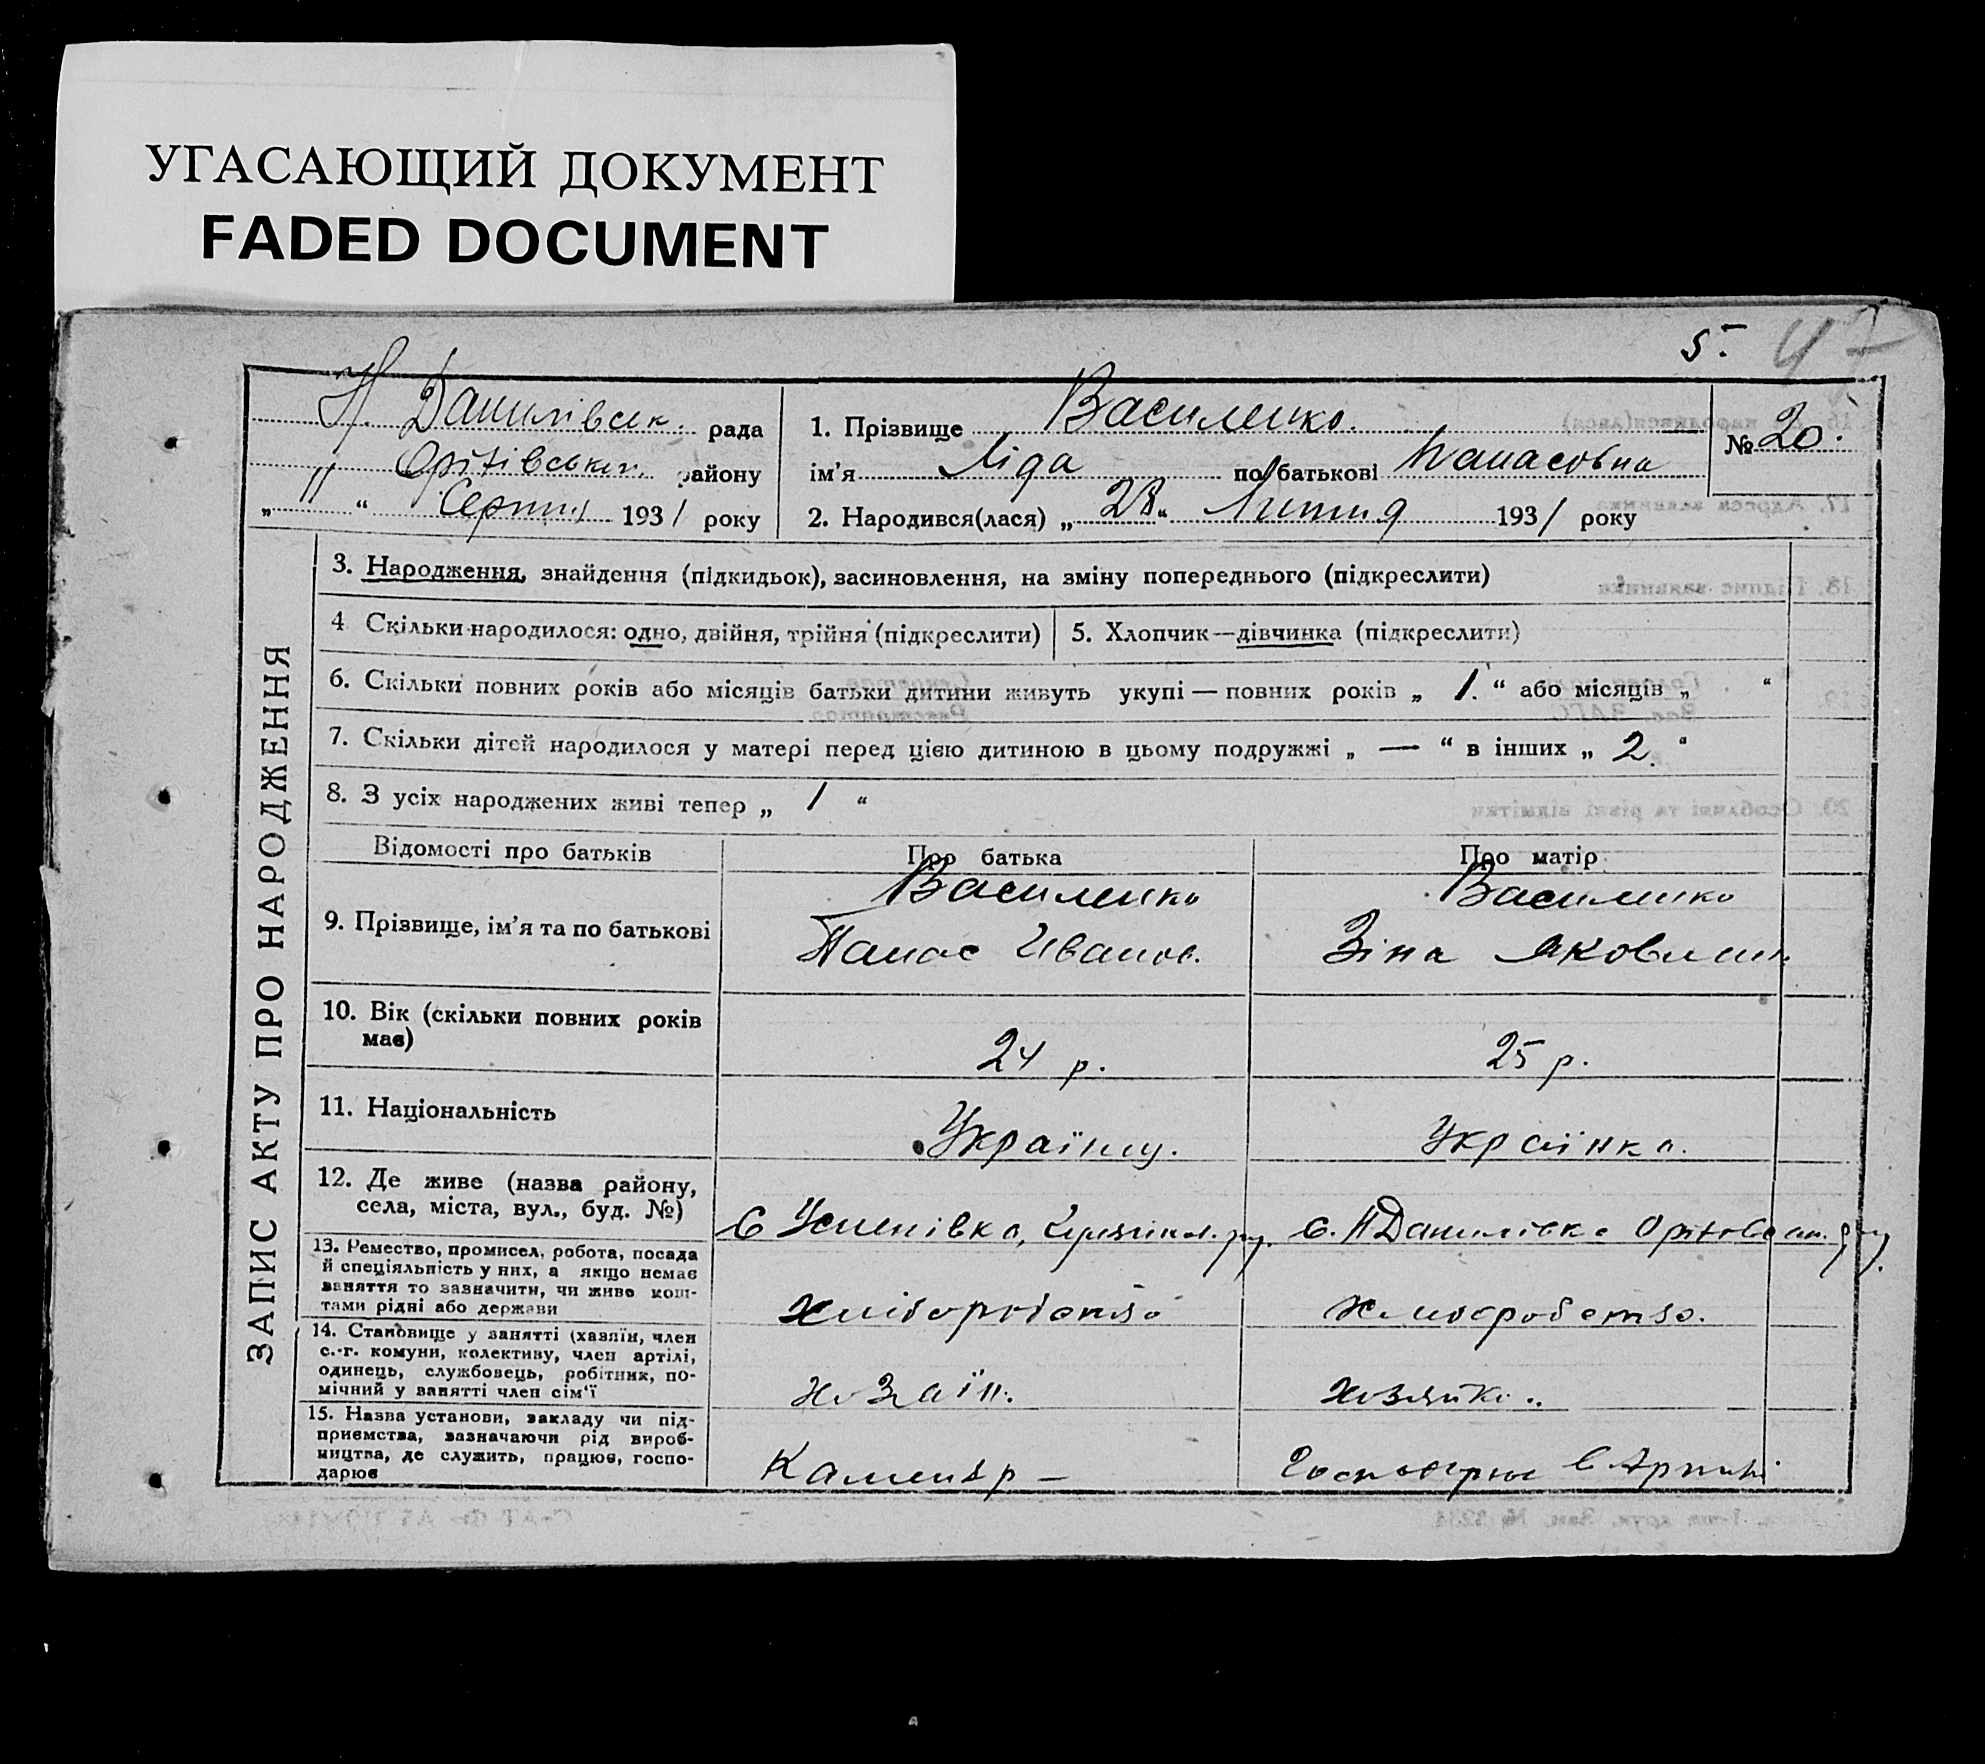 УГАСАЮЩИЙ ДОКУМЕНТ
FADED DOCUMENT
5. 47
Н. Данилівськ. рада
Оріхівськ. району
„ 11 “ Серпня 1931 року
1. Прізвище Василенко.
ім’я Ліда по батькові Панасовна
2. Народився(лася) „ 28 “ Липня 1931 року
№ 20.
ЗАПИС АКТУ ПРО НАРОДЖЕННЯ
3. Народження, знайдення (підкидьок), засиновлення, на зміну попереднього (підкреслити)
4 Скільки народилося: одно, двійня, трійня (підкреслити)
5. Хлопчик—дівчинка (підкреслити)
6. Скільки повних років або місяців батьки дитини живуть укупі — повних років „ 1. “ або місяців „ “
7. Скільки дітей народилося у матері перед цією дитиною в цьому подружжі „ — “ в інших „ 2. “
8. З усіх народжених живі тепер „ 1 “
Відомості про батьків Про батька Про матір
9. Прізвище, ім’я та по батькові
Василенко
Панас Иванов.
Василенко
Зіна Яковлин.
10. Вік (скільки повних років
має)
24 р.
25 р.
11. Національність
Україну.
Українка.
12. Де живе (назва району,
села, міста, вул., буд. №)
С Успенівка,
с. Н Данилівка Оріхівськ.
13. Ремество, промисел, робота, посада
й спеціяльність у них, а якщо немає
заняття то зазначити, чи живе кош-
тами рідні або держави
хліборобство
хліборобство.
14. Становище у занятті (хазяїн, член
с.-г. комуни, колективу, член артілі,
одинець, службовець, робітник, по-
мічний у занятті член сім’ї
хозаїн.
хозяйка..
15. Назва установи, закладу чи під-
приємства, зазначаючи рід вироб-
ництва, де служить, працює, госпо-
дарює
Каменяр —
Господарює в Артілі